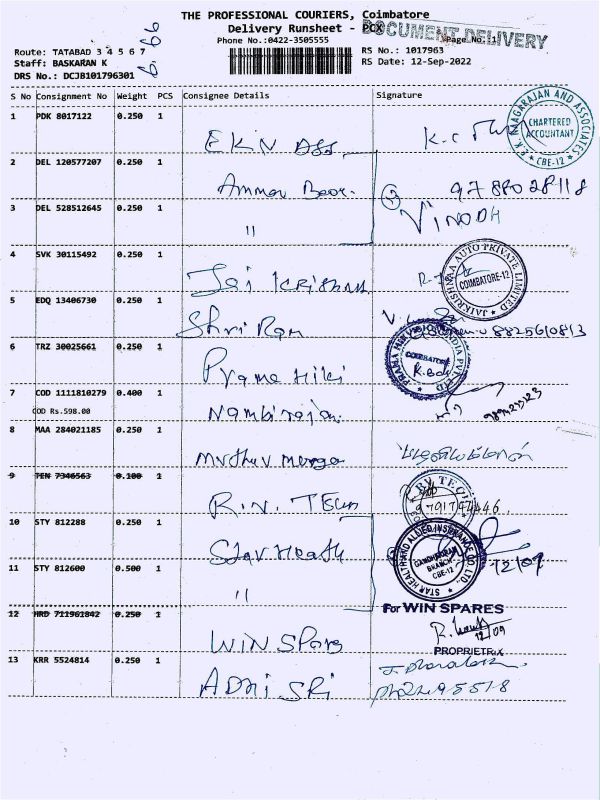 THE PROFESSIONAL COURIERS, Coimbatore
Delivery Runsheet - PCX
DOCUMENT DELIVERY
Phone No.:0422-3505555
Page No. 1
Route: TATABAD 3 4 5 6 7
Staff: BASKARAN K
DRS No.: DCJB101796301
RS No.: 1017963
RS Date: 12-Sep-2022
S No Consignment No Weight PCS Consignee Details Signature
1 PDK 8017122 0.250 1 EKN
K. NAGARAJAN AND ASSOCIATES
CHARTERED
ACCOUNTANT
CBE-12
2 DEL 120577207 0.250 1 Amman
3 DEL 528512645 0.250 1 "
VINODH
4 SVK 30115492 0.250 1 Jai Krishna
JAIKRISHNAA AUTO PRIVATE LIMITED
COIMBATORE-12
5 EDQ 13406730 0.250 1 Shri Ram
8825610813
6 TRZ 30025661 0.250 1 Prama Hiki
COIMBATORE
7 COD 1111810279 0.400 1 Nambirajan
COD Rs.598.00
8 MAA 284021185 0.250 1 Muthu
9 TEN 7346563 0.100 1 R.N. Tech
10 STY 812288 0.250 1 Star Heath
STAR HEALTH AND ALLIED INSURANCE CO. LTD.,
GANDHIPURAM
BRANCH
CBE-12
12/09
11 STY 812600 0.500 1 "
For WIN SPARES
12 HRD 711961842 0.250 1 WIN Spares
12/09
PROPRIETRIX
13 KRR 5524814 0.250 1 ADHI SRI